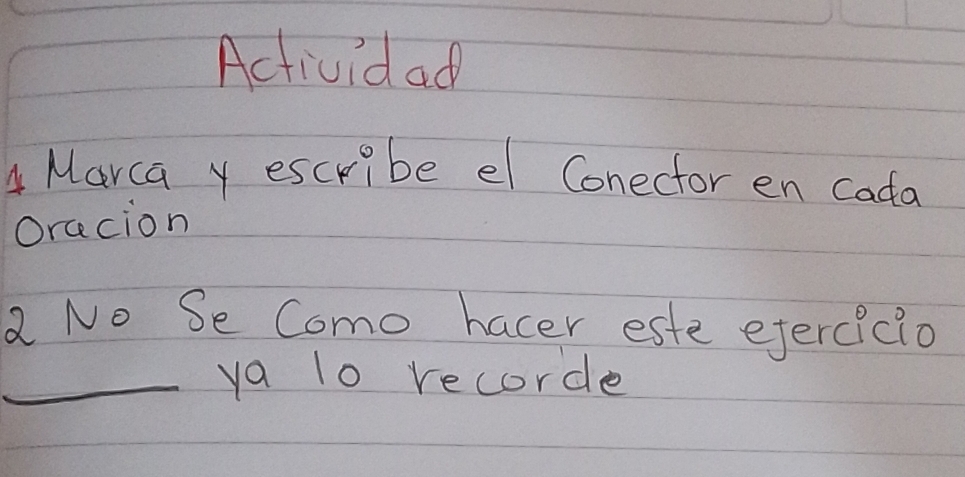 Actividad
1 Marca y escribe el Conector en cada
Oracion
2 No Se Como hacer este ejercicio
______ ya lo recorde